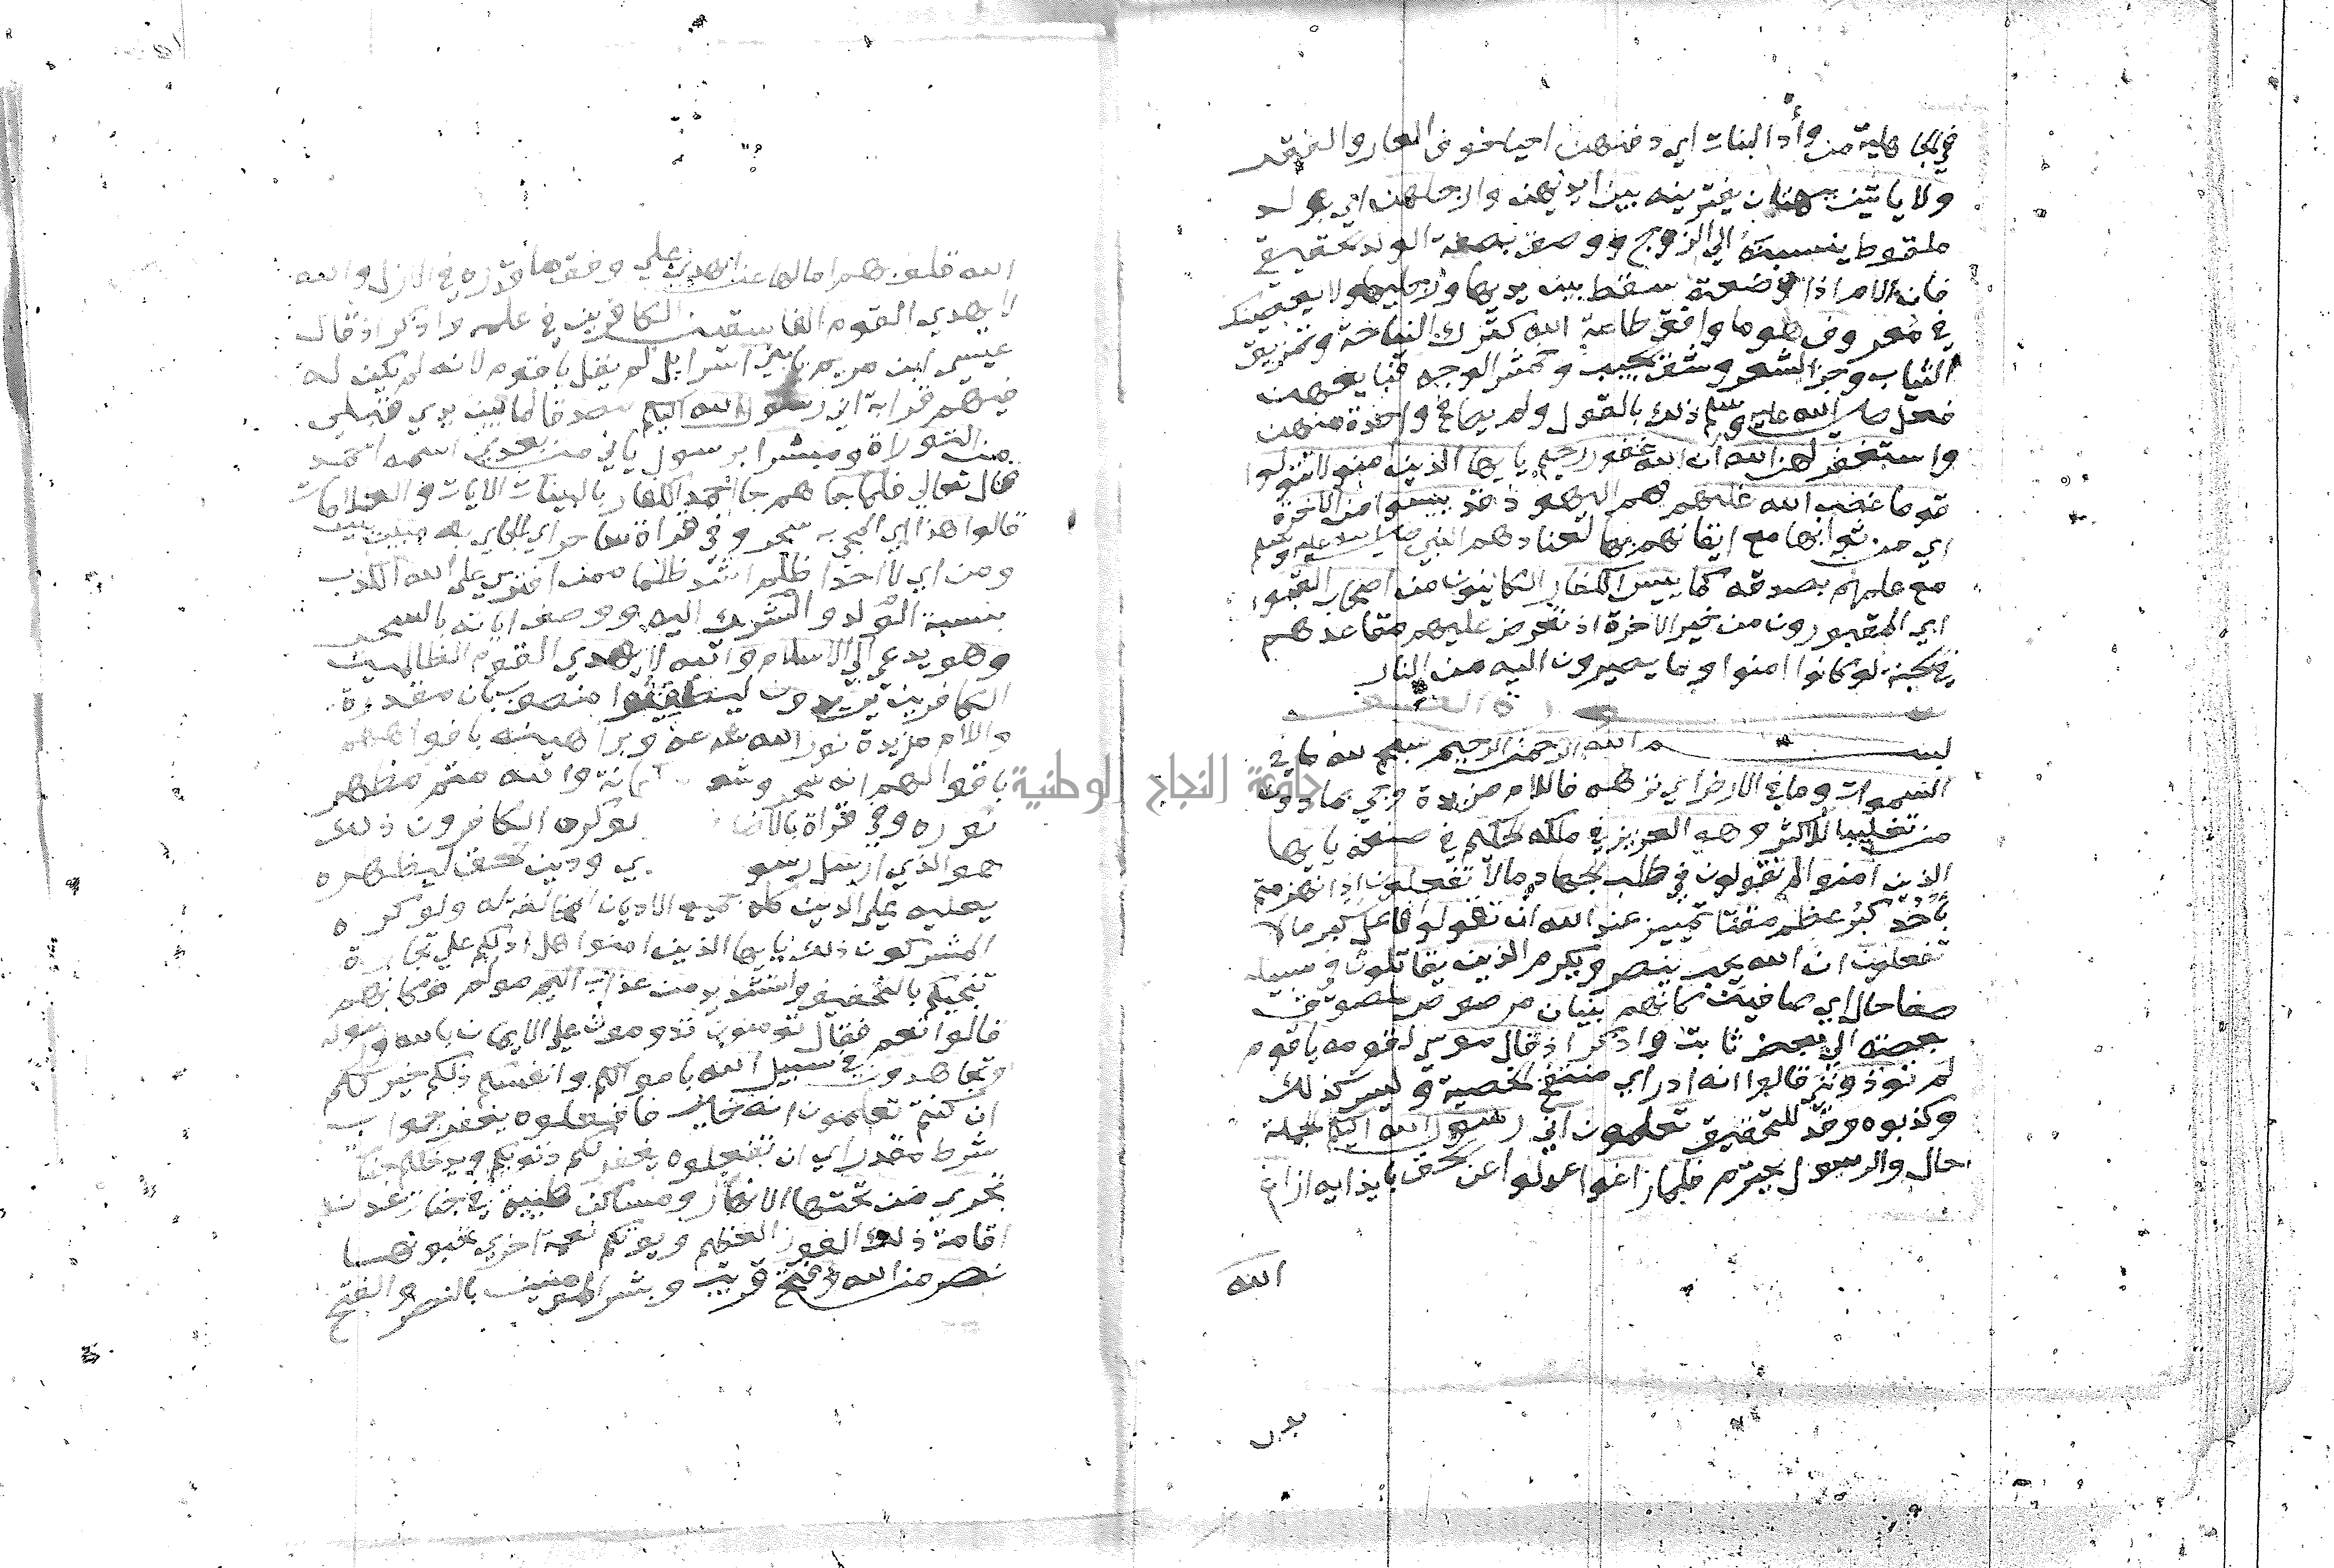 في الجاهلية من وأد البنات اي دفنهن احيا خوف العار والفقر
ولا ياتين ببهتان يفترينه بين ايديهن وارجلهن اي بولد
ملقوط ينسبنه الي الزوج ووصف بصفة الولد الحقيقي
فان الام اذا وضعته سقط بين يديها ورجليها ولا يعصينك
في معروف هو ما وافق طاعة الله كترك النياحة وتمزيق
الثياب وجز الشعر وشق الجيب وخمش الوجه فبايعهن
فعل صلي الله عليه وسلم ذلك بالقول ولم يصافح واحدة منهن
واستغفر لهن الله ان الله غفور رحيم يايها الذين امنو لا تتولوا
قوما غضب الله عليهم هم اليهود قد يئسوا من الاخرة
اي من ثوابها مع ايقانهم بها لعنادهم النبي صلي الله عليه وسلم
مع علمهم بصدقه كما يئس الكفار الكاينون من اصحاب القبور
اي المقبورون من خير الاخرة اذ تعرض عليهم مقاعدهم
في الجنة لو كانوا امنوا وما يصيرون اليه من النار
سورة الصف
بسم الله الرحمن الرحيم سبح لله ما في
السموات وما في الارض اي نزهه فاللام مزيدة وجي بما دون
من تغليبا للاكثر وهو العزيز في ملكه الحكيم في صنعه يايها
الذين امنوا لم تقولون في طلب الجهاد ما لا تفعلون اذ انهزمتم
بأحد كبر عظم مقتا تمييز عند الله ان تقولوا فاعل كبر ما لا
تفعلون ان الله يحب ينصر ويكرم الذين يقاتلون في سبيله
صفا حال اي صافين كانهم بنيان مرصوص ملصوق
بعضه الي بعض ثابت واذكر اذ قال موسي لقومه ياقوم
لم توذونني قالوا انه ادر اي منتفخ الخصية وليس كذلك
وكذبوه وقد للتحقيق تعلمون اني رسول الله اليكم الجملة
حال والرسول يحترم فلما زاغوا عدلوا عن الحق بايذايه ازاغ
الله
الله قلوبهم امالها عن الهدي علي وفق ما قدره في الازل والله
لا يهدي القوم الفاسقين الكافرين في علمه واذكر اذ قال
عيسي ابن مريم يابني اسرايل لم يقل ياقوم لانه لم يكن له
فيهم قرابة اني رسول الله اليكم مصدقا لما بين يدي قبلي
من التوراة ومبشرا برسول ياتي من بعدي اسمه احمد
قال تعالي فلما جاهم جا احمد الكفار بالبينات الايات والعلامات
قالوا هذا اي المجي به سحر وفي قراة ساحر اي الجاي به مبين بين
ومن اي لا احد اظلم اشد ظلما ممن افتري علي الله الكذب
بنسبة الولد والشرك اليه ووصف اياته بالسحر
وهو يدعي الي الاسلام والله لا يهدي القوم الظالمين
الكافرين يريدون ليطفئوا منصوب بان مقدرة
واللام مزيدة نور الله شرعه وبراهينه بافواههم
باقوالهم انه سحر وشعر وكهانة والله متم مظهر
نوره وفي قراة بالاضا ولو كره الكافرون ذلك
هو الذي ارسل رسو ي ودين الحق ليظهره
يعليه علي الدين كله جميع الاديان المخالفة له ولو كره
المشركون ذلك يايها الذين امنوا هل ادلكم علي تجارة
تنجيكم بالتخفيف والتشديد من عذاب اليم مولم فكانهم
قالوا نعم فقال تومنون تدومون علي الايمان بالله ورسوله
وتجاهدون في سبيل الله باموالكم وانفسكم ذلكم خير لكم
ان كنتم تعلمون انه خير فافعلوه يغفر جواب
شرط مقدر اي ان تفعلوه يغفر لكم ذنوبكم ويدخلكم جنات
تجري من تحتها الانهار ومساكن طيبة في جنات عدن
اقامة ذلك الفوز العظيم ويوتكم نعمة اخري تحبونها
نصر من الله وفتح قريب وبشر المومنين بالنصر والفتح
جامعة النجاح الوطنية